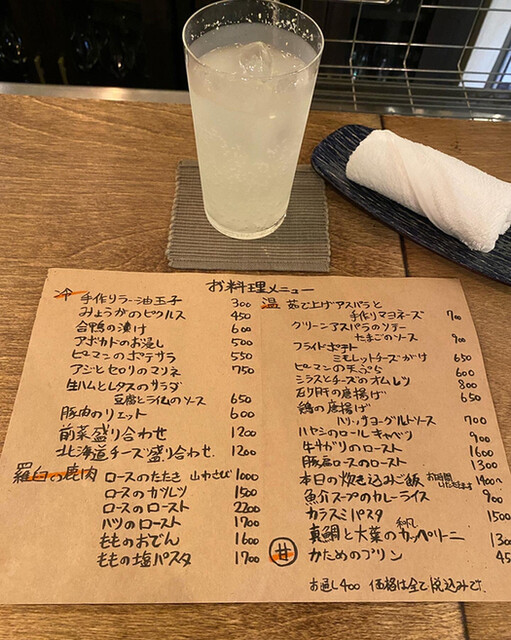 お料理メニュー
冷 手作りラー油玉子 300
みょうがのピクルス 450
合鴨の漬け 600
アボカドのお浸し 500
ピーマンのポテサラ 550
アジとセロリのマリネ 750
生ハムとレタスのサラダ
豆腐とライムのソース 650
豚肉のリエット 600
前菜盛り合わせ 1200
北海道チーズ盛り合わせ 1200
羅臼の鹿肉 ロースのたたき 山わさび 1000
ロースのカツレツ 1500
ロースのロースト 2200
ハツのロースト 1700
もものおでん 1600
ももの塩パスタ 1700
温 茹で上げアスパラと
手作りマヨネーズ 700
グリーンアスパラのソテー
たまごのソース 900
フライドポテト
ミモレットチーズがけ 650
ピーマンの天ぷら 600
シラスとチーズのオムレツ 800
砂肝の唐揚げ 650
鶏の唐揚げ
ハリッサヨーグルトソース 700
ハヤシのロールキャベツ 900
牛サガリのロースト 1600
豚肩ロースのロースト 1300
本日の炊き込みご飯 お時間いただきます 1400〜
魚介スープのカレーライス 900
カラスミパスタ 1500
真鯛と大葉の 冷製 カッペリーニ 1300
甘 かためのプリン 45
お通し400 価格は全て税込みです。